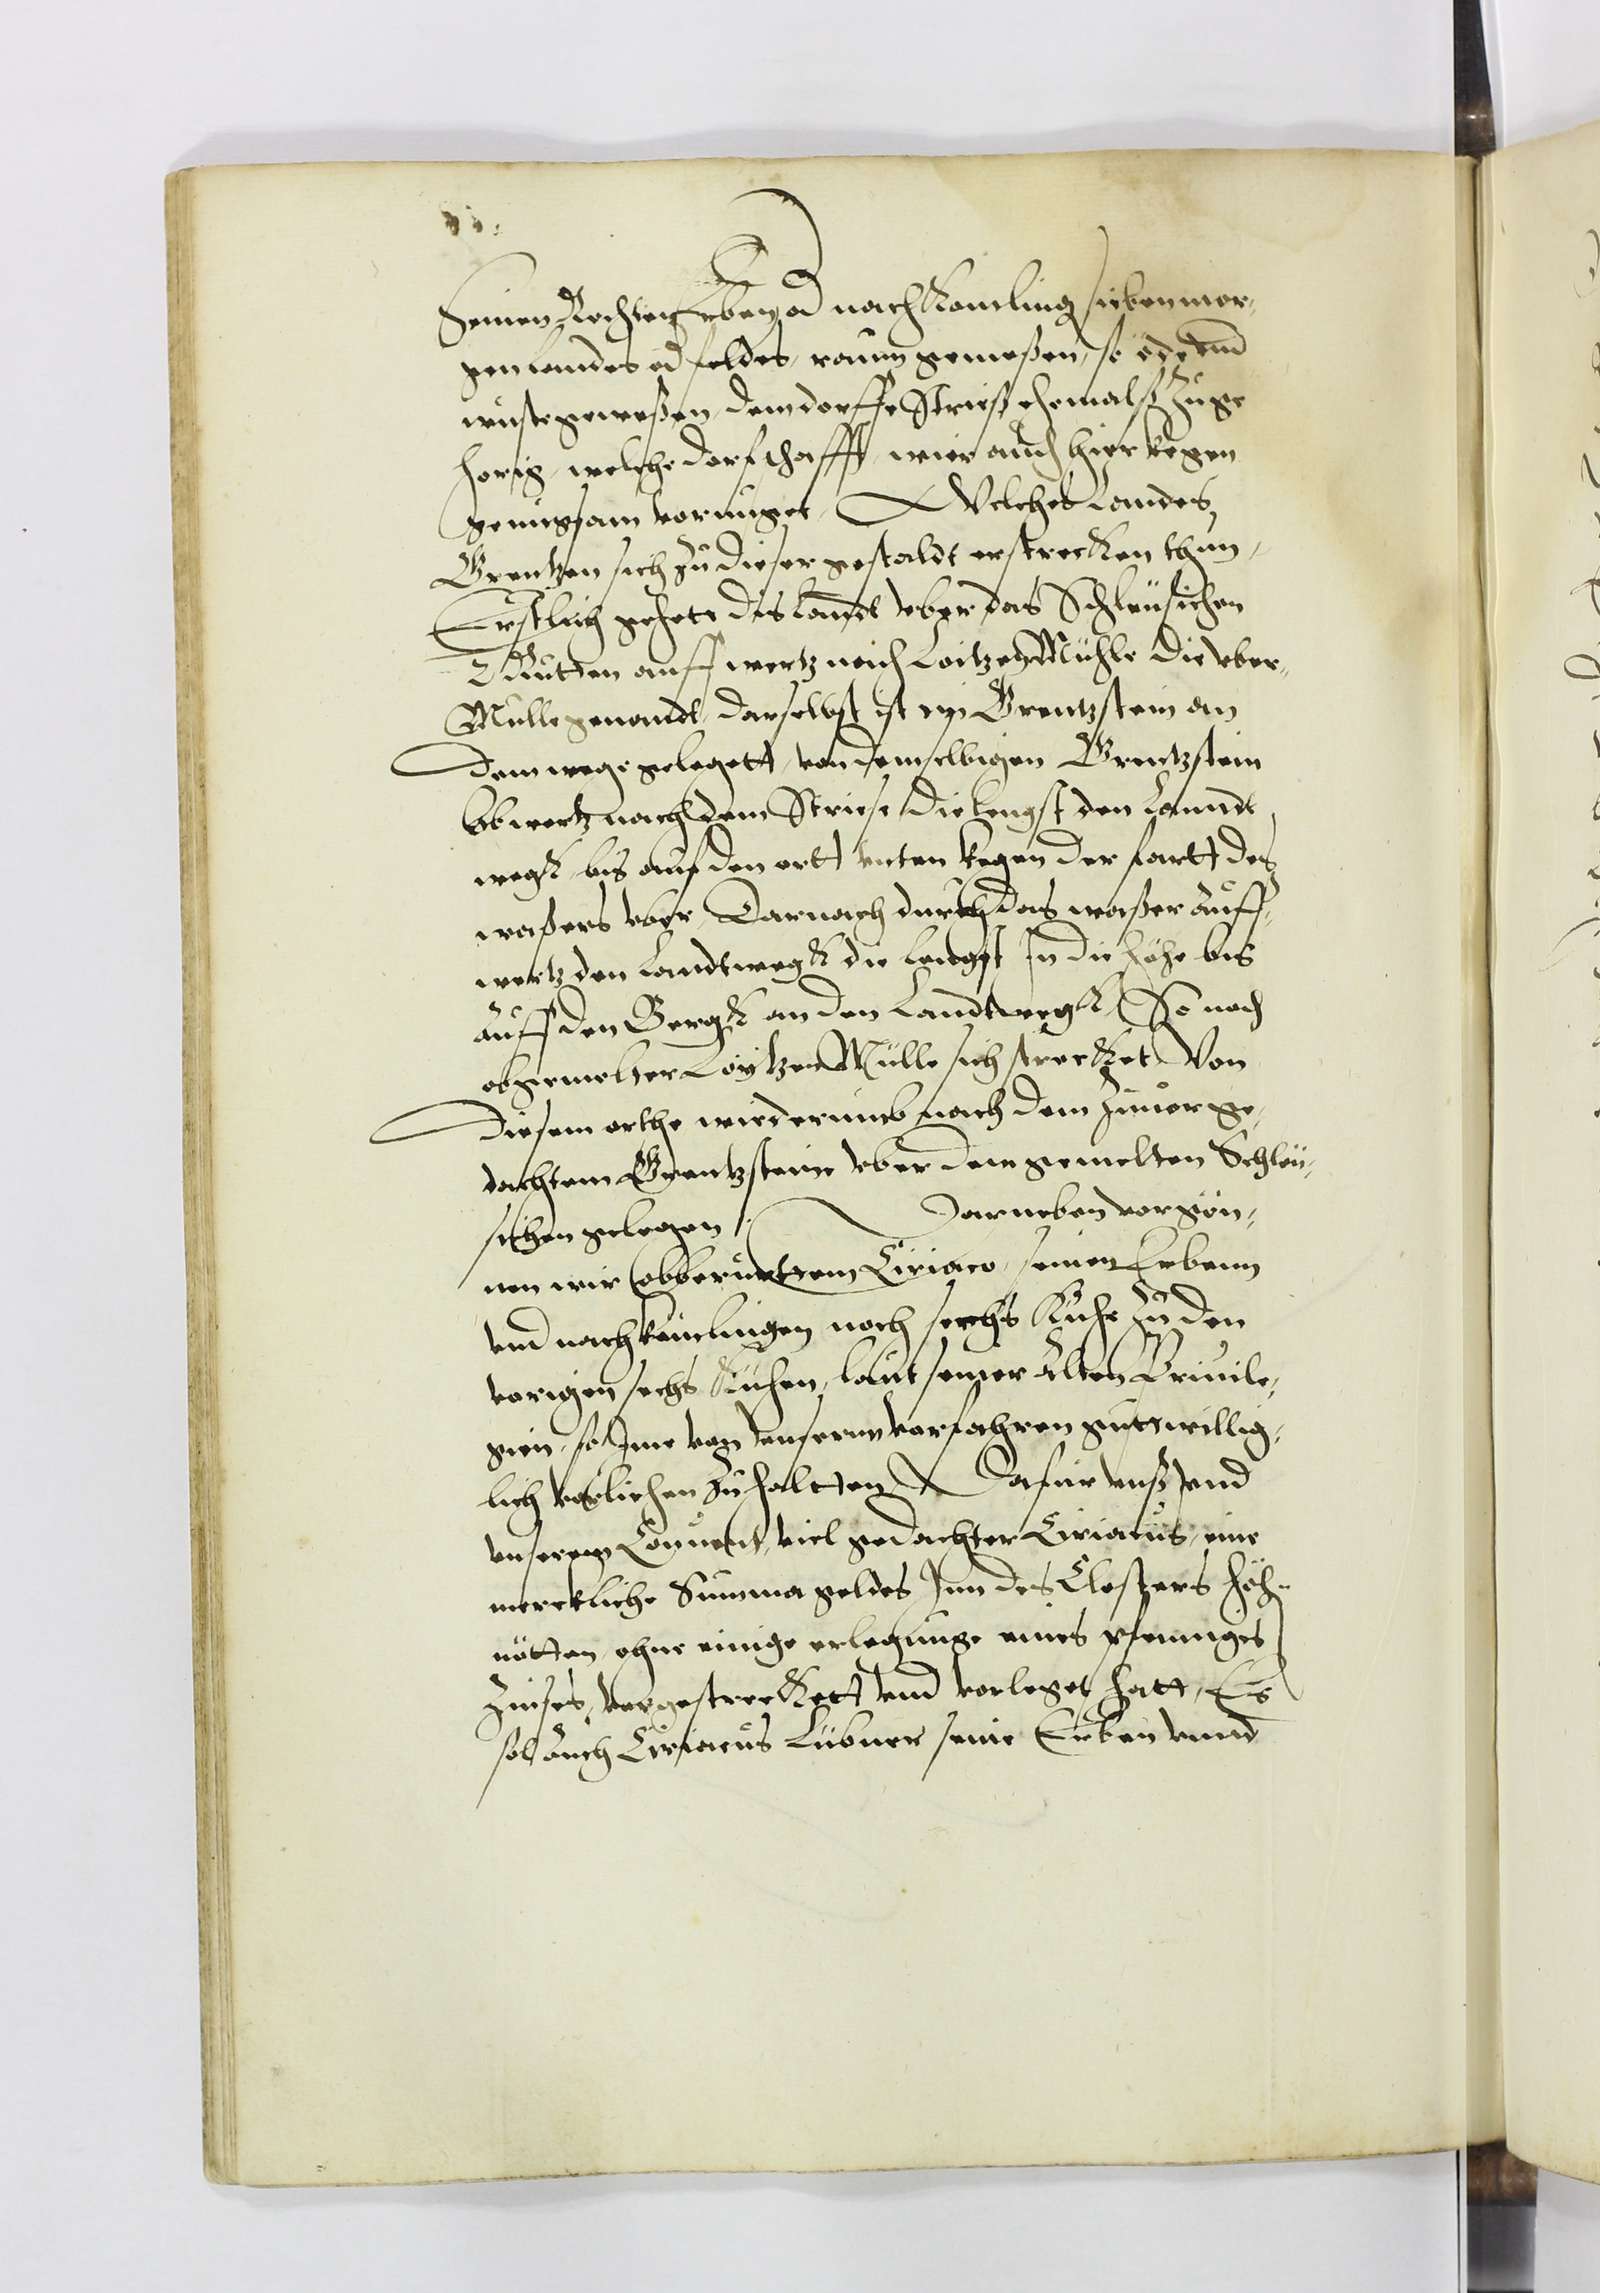 Seinen Rechten Erben od nachkomling sieben mor¬
gen landes od feldes, raum gemeßen, so öde vnd
wüste geweßen, dem dorffe Strieß ehemalß zuge
horig, welche dorfschafft, wier auch hier kegen
genugsam vornuget, Welches Landes
Grentzen sich zu dieser gestaldt erstrecken thun,
Erstlich gehets dis landt vber das Schleusichen
auffwertz nach Loitzen Mühle die vber¬
Mulle genandt, darselbst ist ein Grentzstein an
dem wege gelegett, von demselbigen Grentzstein
abwertz nach dem Striese die lengst den Lanndt
wegk, bis auf den ortt vnten kegen der fartt des
waßers vber, Darnach durch das waßer auff¬
wertz den Landtwegk die lengst In die höhe bis
auff den Bergk an den Landtwegk, So nach
obgemelter Loytzen Mülle sich strecket, Von
diesem orthe wiederumb nach dem zuuor ge¬
dachtem Grentzsteine vber dem gemelten Schleu¬
sichen gelegen. Darneben vorgön¬
nen wir obberurttem Ciriaco, seinen Erbenn
vnd nachkömlingen noch sechs Kuhe zu den
vorigen sechs Kuhen, laut seiner alten Priuile¬
gien, so Ime von vnsernn vorfahren guttwillig¬
lich vorliehen zu haltten, Dafur vnß vnd
vnserem Conuent, viel gedachter Ciriacus, eine
merckliche Summa geldes Inn des Closters höh¬
nötten, ohne einige erlegunge eines pfenniges
Zinses, vorgestreckett vnd vorleget hatt, Es
sol auch Ciriacus Lübner seine Erben vnnd